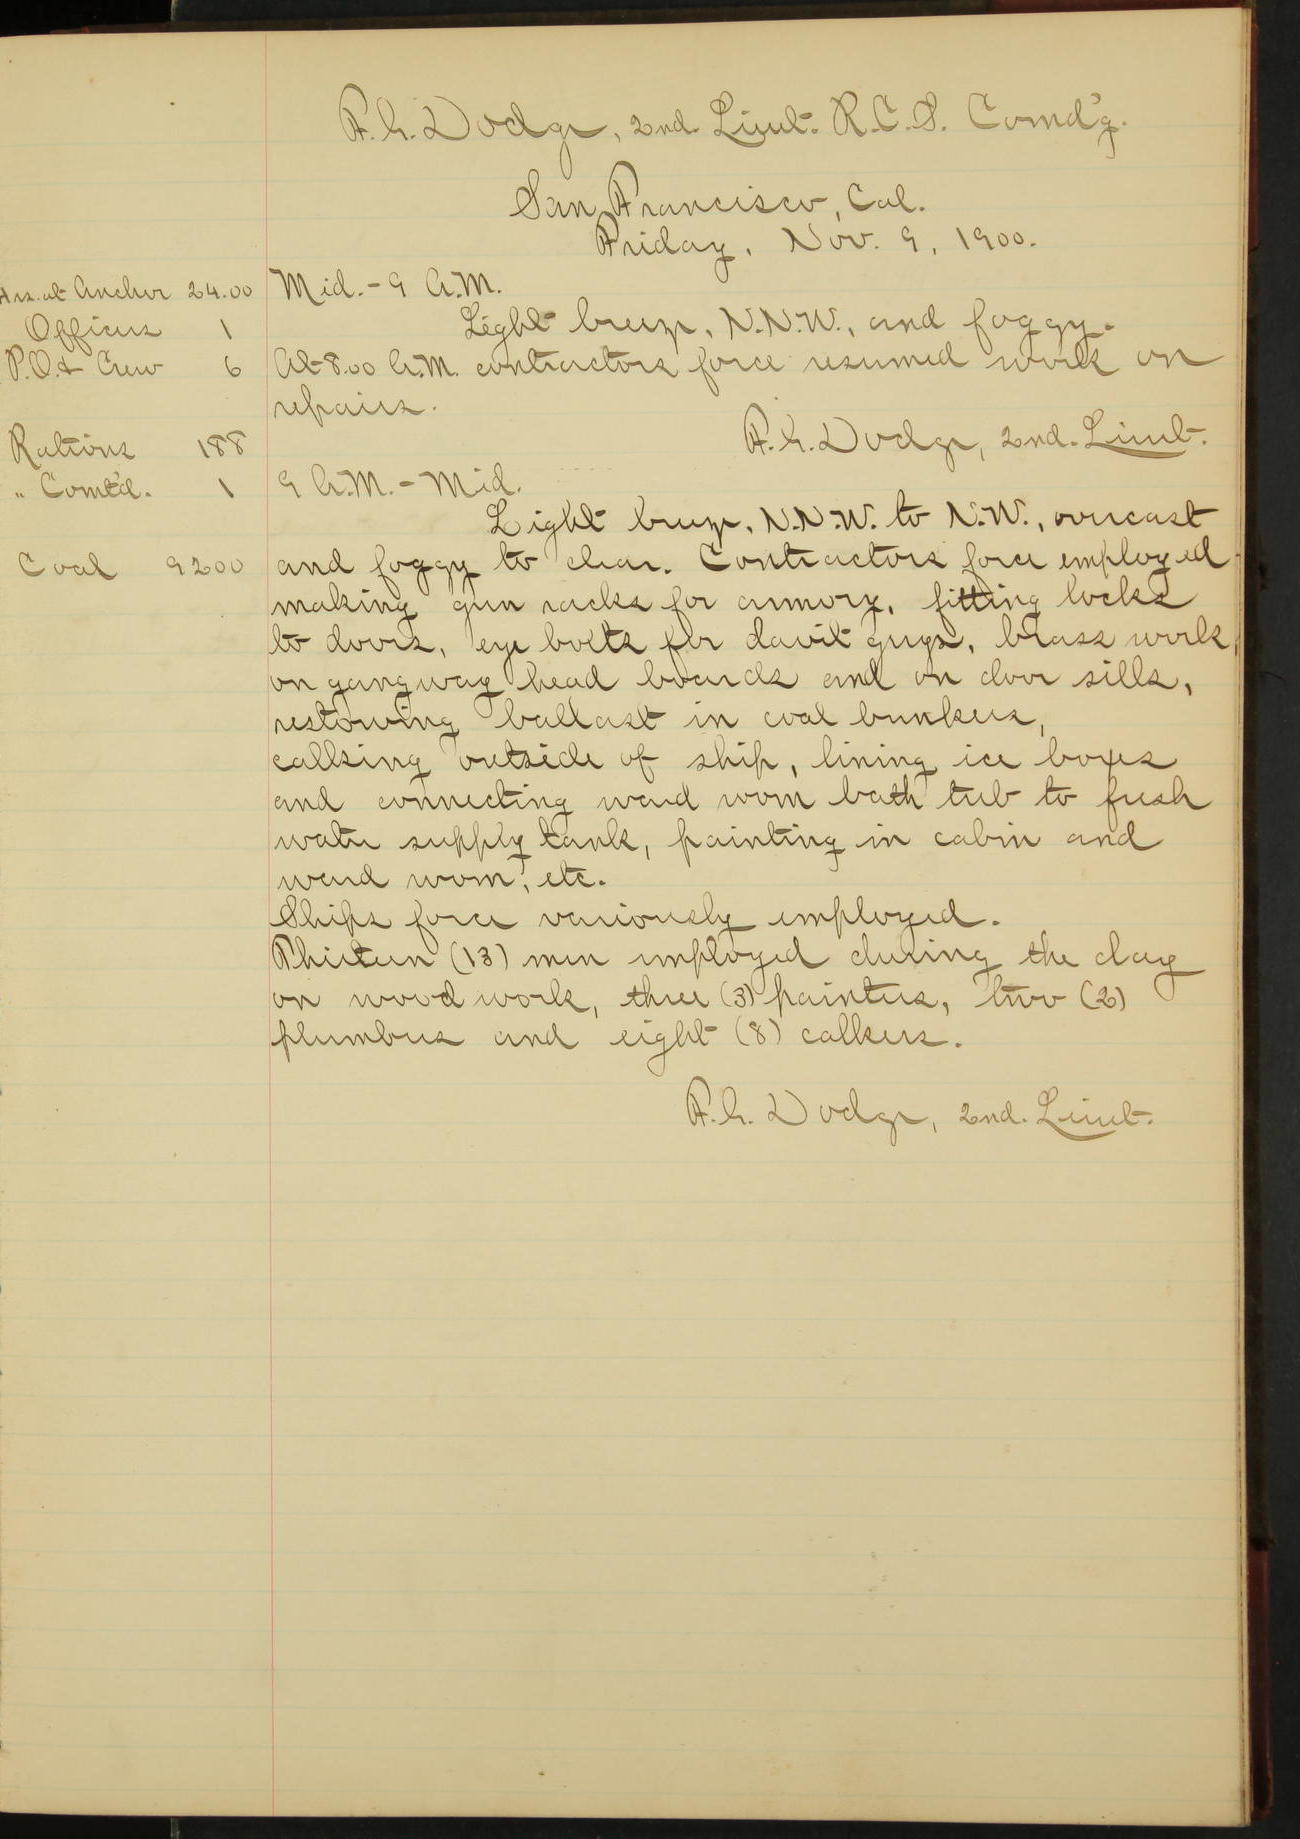 F.G. Dodge, 2nd. Lieut. R.C.S. Comd'g.
San Francisco, Cal.
Friday, Nov. 9, 1900.
Hrs. at Anchor 24.00
Mid. - 9 A.M.
Officers 1
Light breeze, N.N.W., and foggy.
P.O. & Crew 6
At 8.00 A.M. contractors force resumed work on
repairs.
F.G. Dodge, 2nd. Lieut.
Rations 188
" Comt'd. 1
9 A.M. - Mid.
Light breeze, N.N.W. to N.W., overcast
Coal 9200
and foggy to clear. Contractors force employed
making gun racks for armory, fitting locks
to doors, eye bolts for davit guys, brass work
on gangway head boards and on door sills,
restowing ballast in coal bunkers,
calking outside of ship, lining ice boxes
and connecting ward room bath tub to fresh
water supply tank, painting in cabin and
ward room, etc.
Ships force variously employed.
Thirteen (13) men employed during the day
on wood work, three (3) painters, two (2)
plumbers and eight (8) calkers.
F.G. Dodge, 2nd. Lieut.